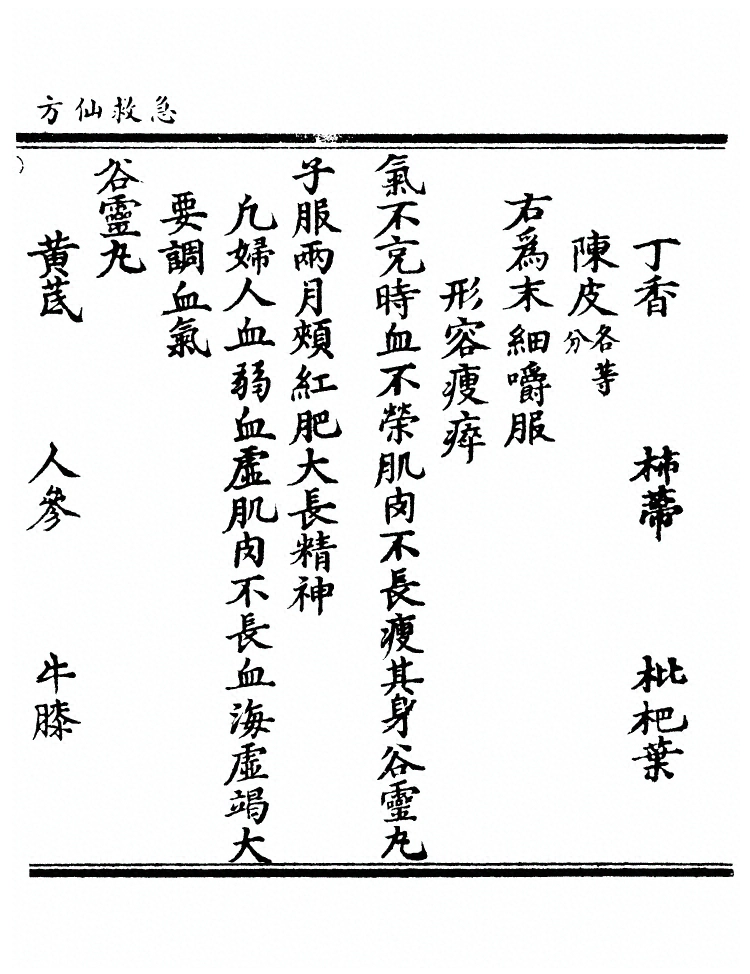 急救仙方
丁香 柿蒂 枇杷葉
陳皮各等分
右爲末細嚼服
形容瘦瘁
氣不克時血不榮肌肉不長瘦其身谷靈丸
子服兩月頰紅肥大長精神
凢婦人血弱血虛肌肉不長血海虛竭大
要調血氣
谷靈丸
黃茋 人參 牛膝